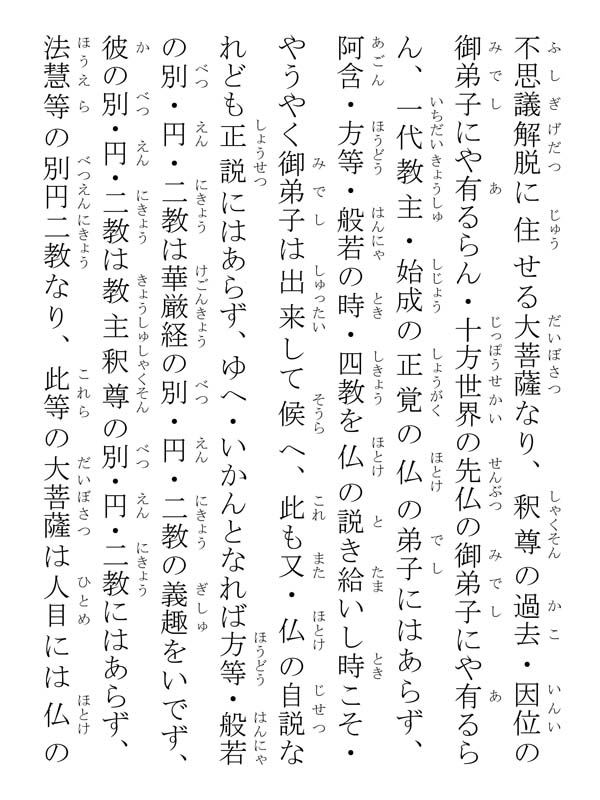 不思議解脱に住せる大菩薩なり、釈尊の過去・因位の
御弟子にや有るらん・十方世界の先仏の御弟子にや有るら
ん、一代教主・始成の正覚の仏の弟子にはあらず、
阿含・方等・般若の時・四教を仏の説き給いし時こそ・
やうやく御弟子は出来して候へ、此も又・仏の自説な
れども正説にはあらず、ゆへ・いかんとなれば方等・般若
の別・円・二教は華厳経の別・円・二教の義趣をいでず、
彼の別・円・二教は教主釈尊の別・円・二教にはあらず、
法慧等の別円二教なり、此等の大菩薩は人目には仏の